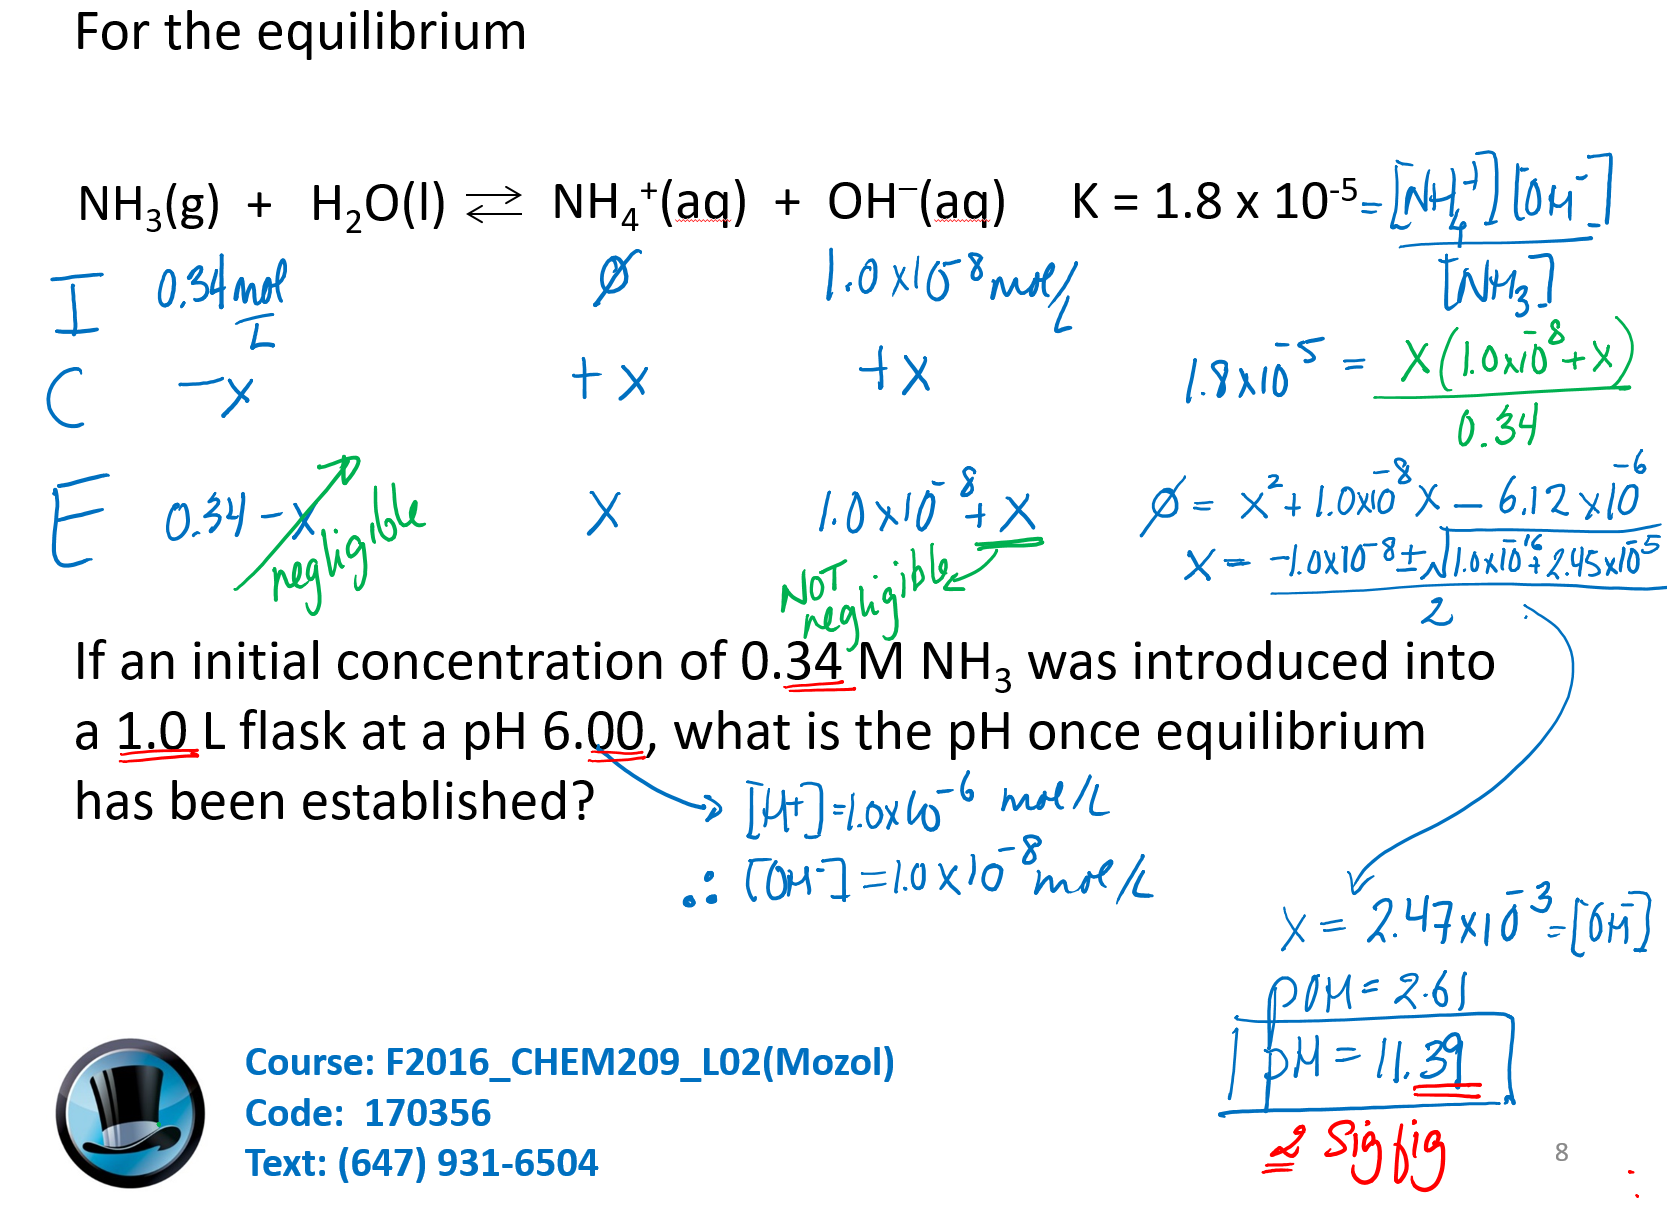 For the equilibrium
NH₃(g) + H₂O(l) ⇌ NH₄⁺(aq) + OH⁻(aq) K = 1.8 x 10⁻⁵ = [NH₄⁺][OH⁻] / [NH₃]
I 0.34 mol/L ∅ 1.0×10⁻⁸ mol/L
C −x +x +x 1.8×10⁻⁵ = x(1.0×10⁻⁸+x) / 0.34
E 0.34−x x 1.0×10⁻⁸+x ∅ = x² + 1.0×10⁻⁸x − 6.12×10⁻⁶
negligible
NOT negligible
x = −1.0×10⁻⁸ ± √1.0×10⁻¹⁶ + 2.45×10⁻⁵ / 2
If an initial concentration of 0.34 M NH₃ was introduced into
a 1.0 L flask at a pH 6.00, what is the pH once equilibrium
has been established?
[H+] = 1.0×10⁻⁶ mol/L
∴ [OH⁻] = 1.0×10⁻⁸ mol/L
x = 2.47×10⁻³ = [OH⁻]
pOH = 2.61
pH = 11.39
2 Sig fig
Course: F2016_CHEM209_L02(Mozol)
Code: 170356
Text: (647) 931-6504
8